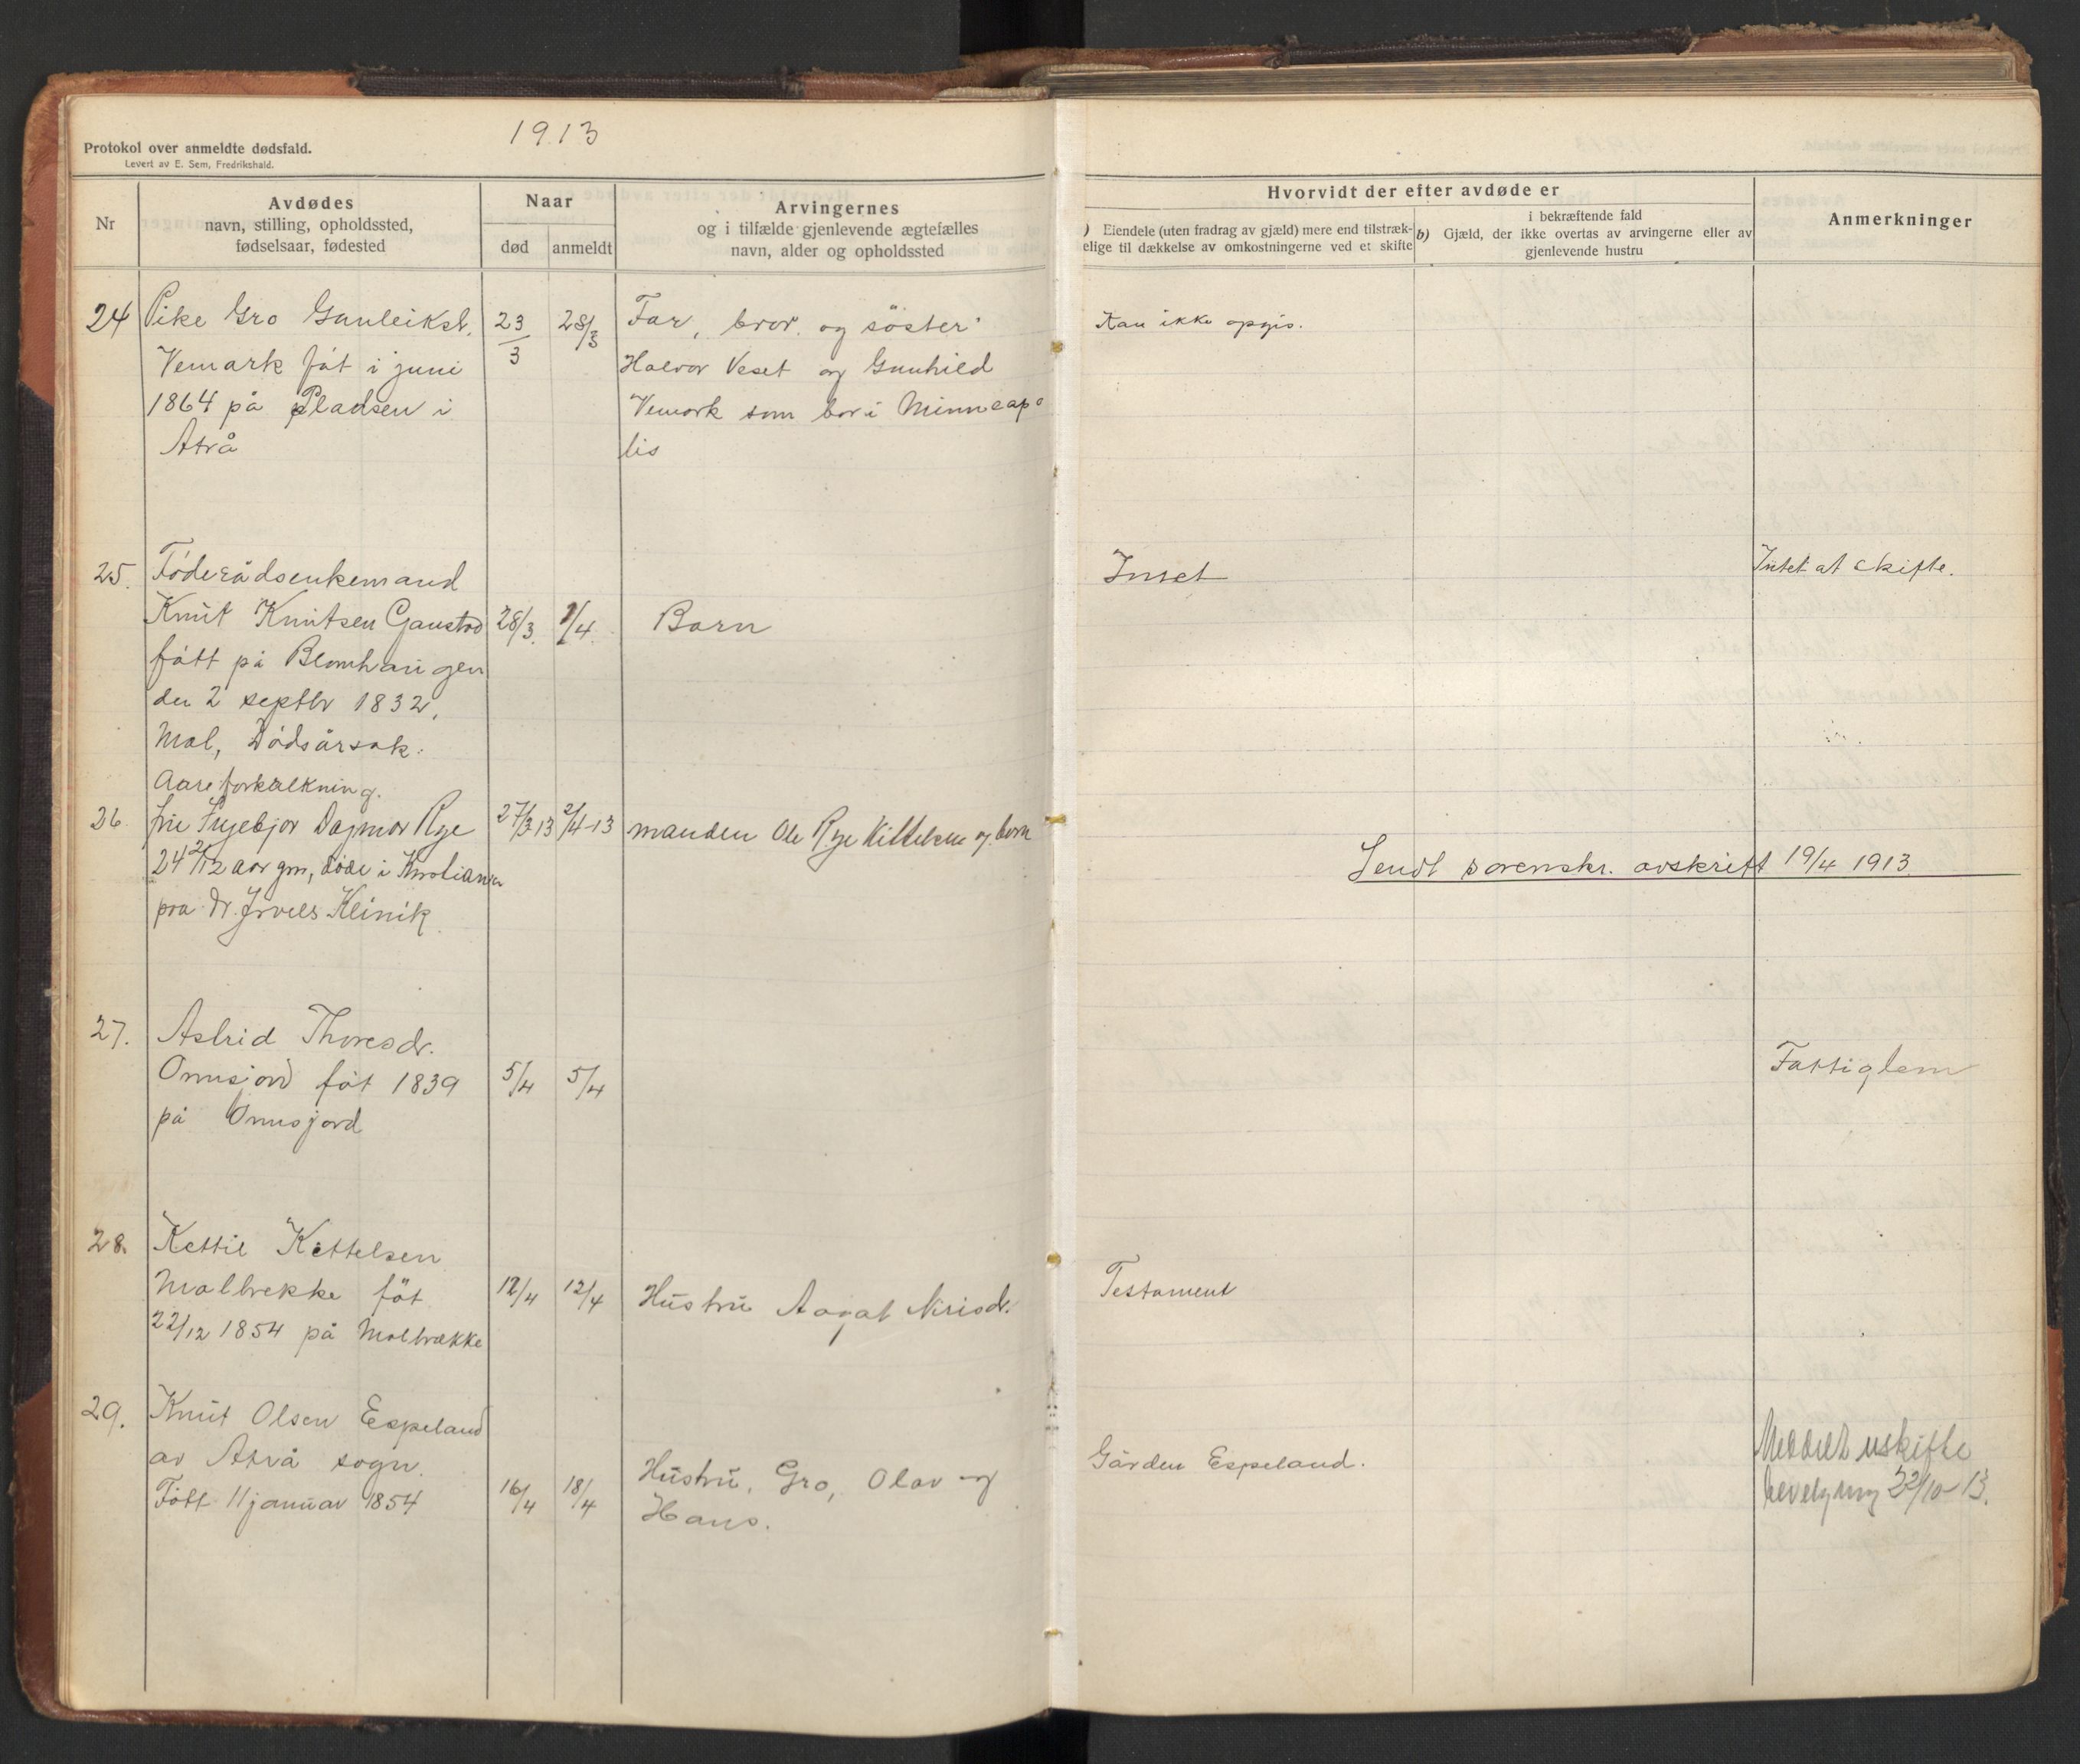 1913
Protokol over anmeldte dødsfald.
Levert av E. Sem, Fredrikshald.
Nr
Avdødes
navn, stilling, opholdssted,
fødselsaar, fødested
Naar
død
anmeldt
Arvingernes
og i tilfælde gjenlevende ægtefælles
navn, alder og opholdssted
Hvorvidt der efter avdøde er
) Eiendele (uten fradrag av gjæld) mere end tilstræk-
elige til dækkelse av omkostningerne ved et skifte
i bekræftende fald
b) Gjæld, der ikke overtas av arvingerne eller av
gjenlevende hustru
Anmerkninger
24 Pike Gro Gunleiksd. 23/3 28/3 Far, bror og söster Kan ikke opgis.
Vemark föt i juni Halvor Veset og Gunhild
1864 på Pladsen i Vemork som bor i Minneapo
Atrå lis
25. Föderådsenkemand Intet Intet at skifte.
Knut Knutsen Gaustad 28/3. 1/4. Born
fött på Blomhaugen
den 2 septbr 1832,
Mæl, Dödsårsak:
Aareforkalkning.
26 frue Ingebjor Dagmar Rye 27/3 13 2/4-13 manden Ole Rye Kittelsen og born
24 2/12 aar gm, döde i Kristiania
paa Dr. Klinik
Sendt sorenskr. avskrift 19/4 1913
27. Astrid Thoresdr.
Ormsjord föt 1839 5/4 5/4 Fattiglem
på Ormsjord
28. Kettil Kettelsen
Molbrekke föt 12/4 12/4 Hustru Aagat Nirisdr. Testament
22/12 1854 på Molbrække
29. Knut Olsen Espeland
av Atrå sogn. Hustru, Gro, Olav og Gården Espeland. Meddelt uskifte
Fött 11 januar 1854 16/4 18/4 Hans. bevilgning 22/10-13.